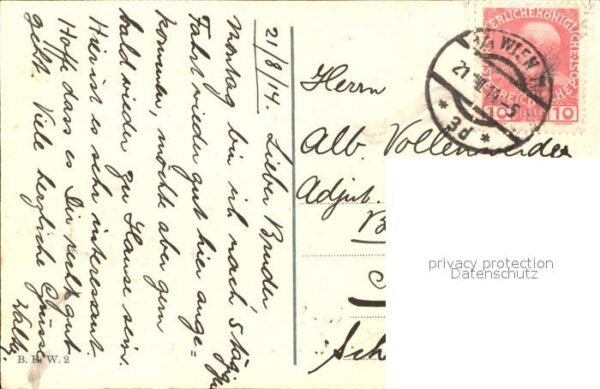 21/8/14. Lieber Bruder
Montag bin ich nach 5 tägiger
Fahrt wieder gut hier ange=
kommen, möchte aber gern
bald wieder zu Hause sein.
Hier ist es sehr interessant.
Hoffe dass es Dir recht gut
geht. Viele herzliche Grüsse
Walty.
B. K. W. 2
Herrn
Alb. Vollenweider
Adjut.
Sch
WIEN
21 VIII 14 - 5
* 3d *
10 10
privacy protection
Datenschutz